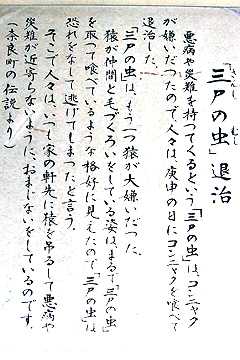 「三尸の虫」退治
さんし むし
悪病や災難を持ってくるという「三尸の虫」は、コンニャク
が嫌いだったので、人々は、庚申の日にコンニャクを喰べて
退治した。
「三尸の虫」は、もう一つ猿が大嫌いだった。
猿が仲間と毛づくろいをしている姿は、まるで「三尸の虫」
を取って喰べているような格好に見えたので「三尸の虫」は
恐れをなして逃げてしまったと言う。
そこで人々は、いつも家の軒先に猿を吊るして悪病や
災難が近寄らないように、おまじないをしているのです。
（奈良町の伝説より）